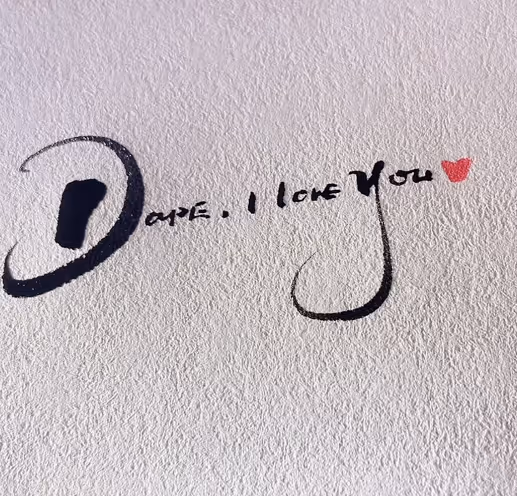 Dape. I love you